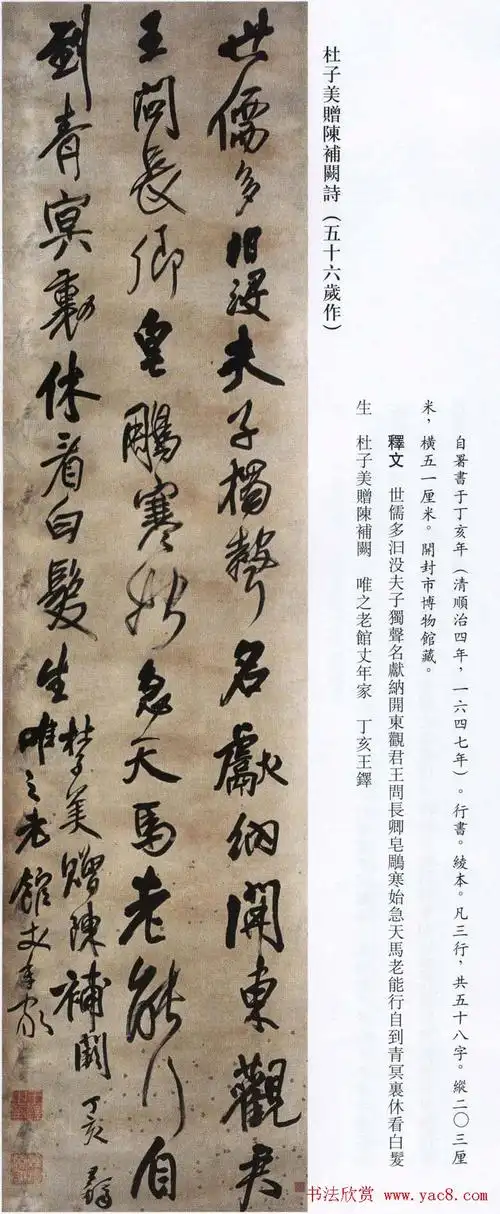 杜子美贈陳補闕詩（五十六歲作）
自署書于丁亥年（清順治四年，一六四七年）。行書。綾本。凡三行，共五十八字。縱二〇三厘
米，橫五一厘米。開封市博物館藏。
釋文　世儒多汩没夫子獨聲名獻納開東觀君王問長卿皂鵰寒始急天馬老能行自到青冥裏休看白髮
生　杜子美贈陳補闕　唯之老館丈年家　丁亥王鐸
世儒多汩没夫子獨聲名獻納開東觀君
王問長卿皂鵰寒始急天馬老能行自
到青冥裏休看白髮生
杜子美贈陳補闕　丁亥　王鐸
唯之老館丈年家
书法欣赏 www.yac8.com